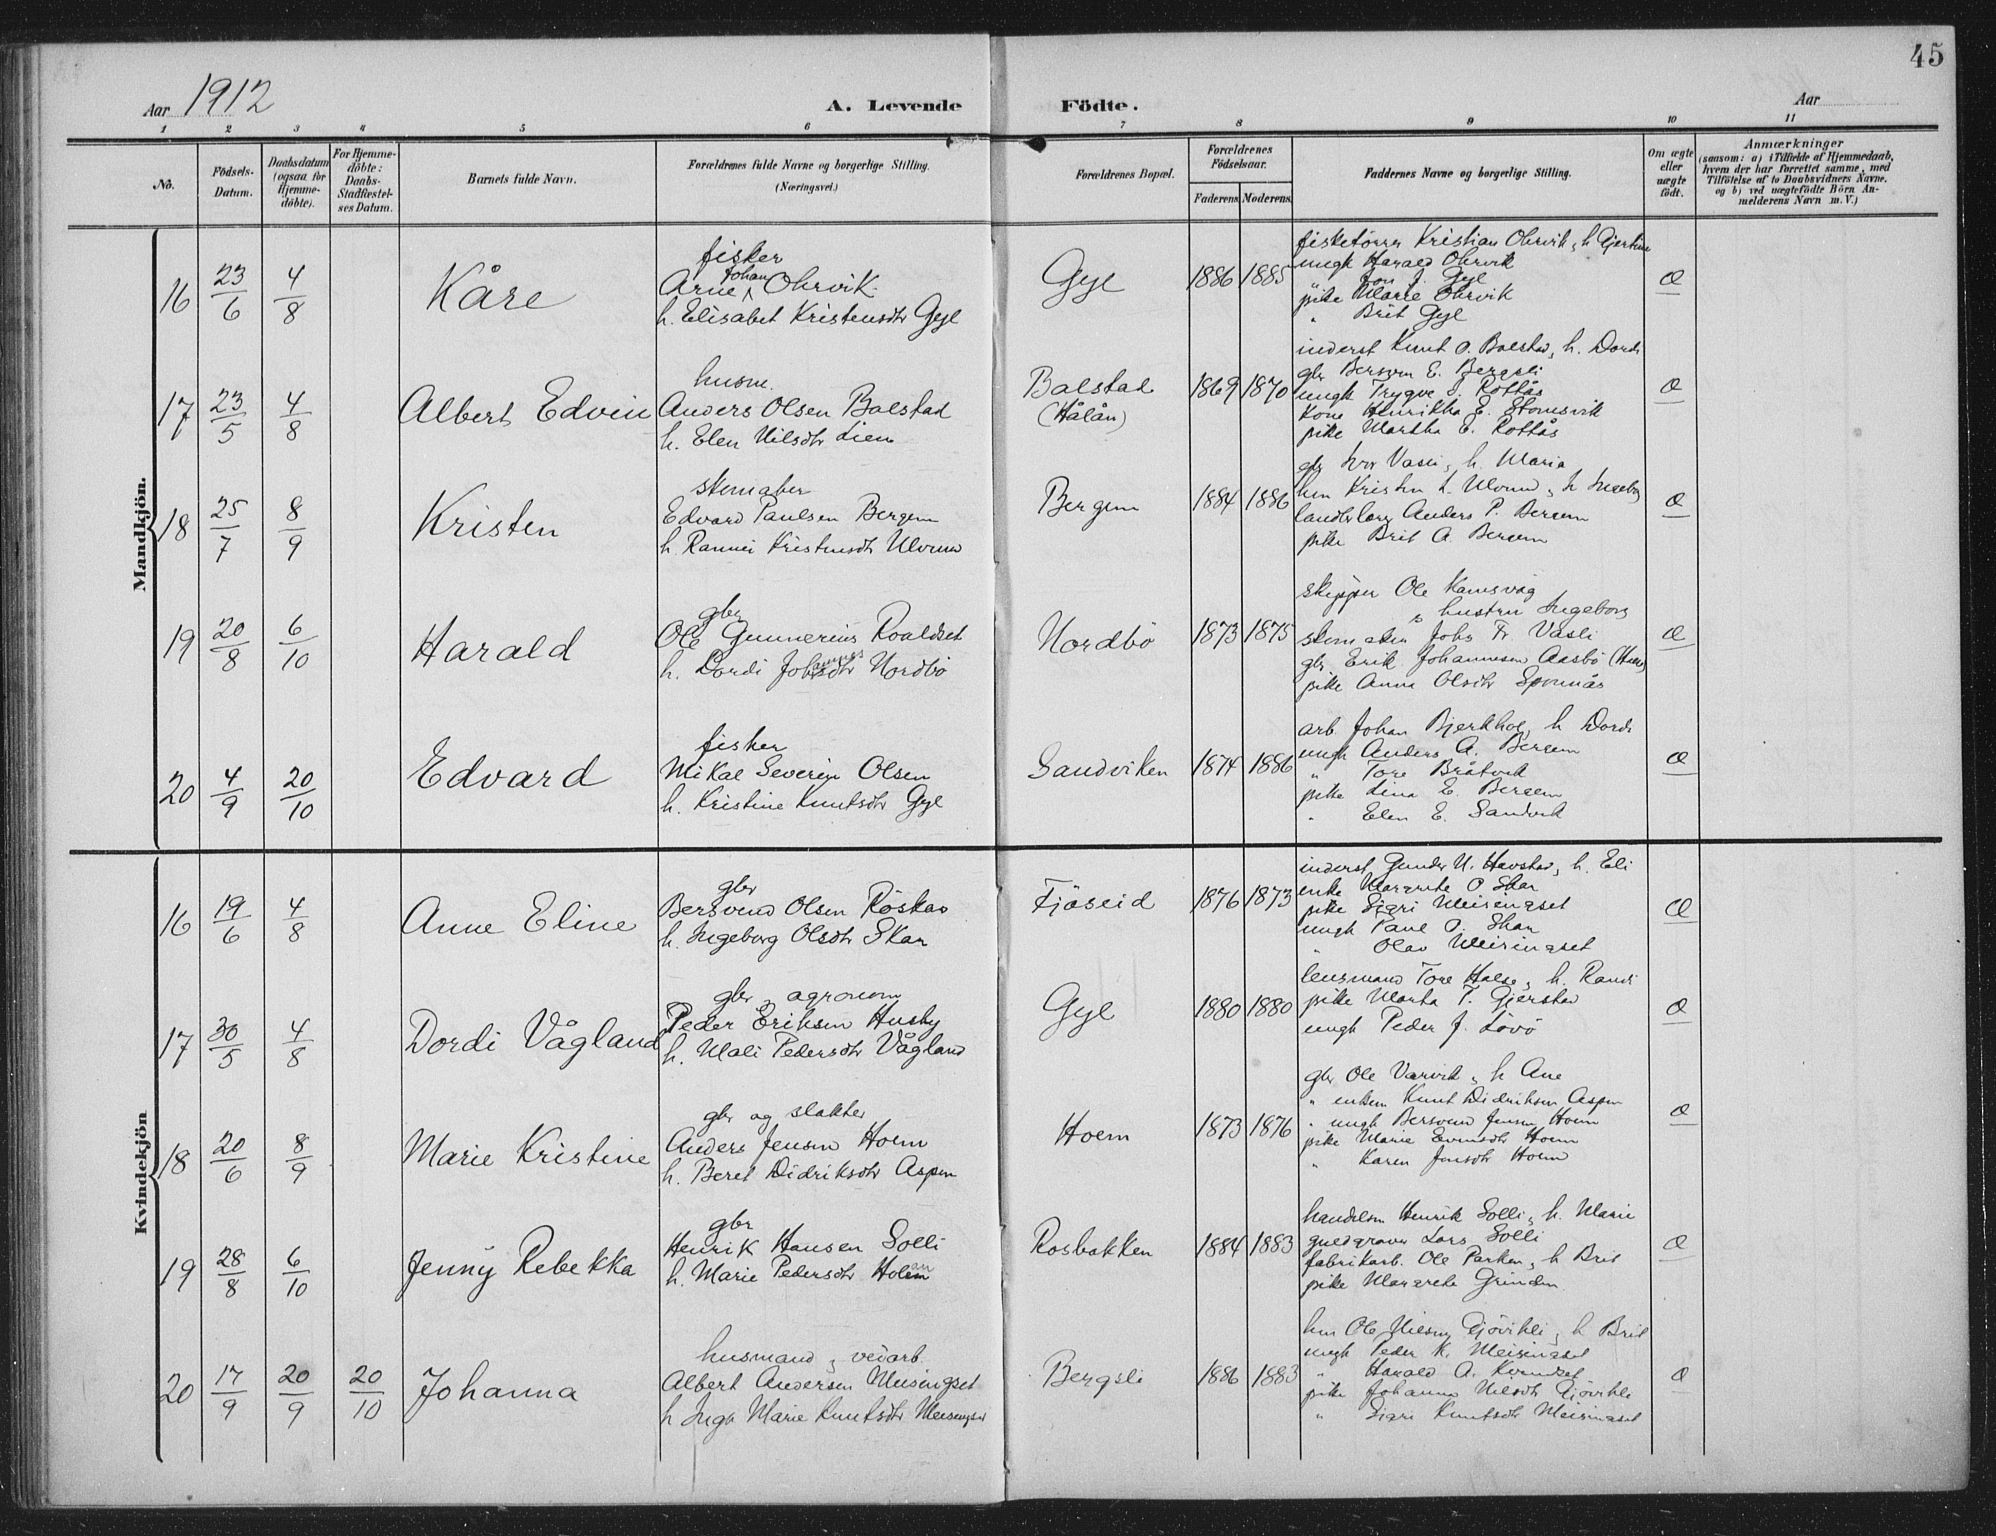 45
Aar 1912
A. Levende Födte.
Aar
1 2 3 4 5 6 7 8 9 10 11
No.
Födsels-
Datum.
Daabsdatum
(ogsaa for
Hjemme-
döbte).
For Hjemme-
döbte:
Daabs-
Stadfæstel-
ses Datum.
Barnets fulde Navn.
Forældrenes fulde Navne og borgerlige Stilling.
(Næringsvei.)
Forældrenes Bopæl.
Forældrenes
Födselsaar.
Faderens Moderens
Faddernes Navne og borgerlige Stilling.
Om ægte
eller
uægte
født.
Anmærkninger
(saasom: a) i Tilfælde af Hjemmedaab,
hvem der har forrettet samme, med
Tilföielse af to Daabsvidners Navne.
og b) ved uægtefödte Börn An-
melderens Navn m. V.)
Mandkjön.
16 23/6 4/8 Kåre
fisker
Arne Johan Ohrvik
h. Elisabet Kristensdtr Gyl
Gyl 1886 1885
Kristian Ohrvik, h. Gjertine
ungk Harald Ohrvik
" Jon J. Gyl
pike Marie Ohrvik
" Brit Gyl
Æ
17 23/5 4/8 Albert Edvin
husm.
Anders Olsen Bolstad
h. Elen Nilsdtr Lien
Bolstad
(Hålån)
1869 1870
inderst Knut O. Bolstad, h. Dordi
gbr E. Bergsli
ungk Trygve J. Rottås
kone E. Stomsvik
pike Martha E. Rottås
Æ
18 25/7 8/9 Kristen
skomaker
Edvard Paulsen Bergem
h. Rannei Kristensdtr Ulvund
Bergem 1884 1886
gbr Iver Vasli, h. Maria
hm Kristen L. Ulvund, h. Ingeborg
Anders P. Bergem
pike Brit A. Bergem
Æ
19 20/8 6/10 Harald
gbr
Ole Gunnerius Roaldset
h. Dordi Johannesdtr Nordbö
Nordbö 1873 1875
skipper Ole Kamsvåg
" hustru Ingeborg
skomaker Johs Fr. Vasli
gbr Erik Johannesen Aasbö
pike Anna Olsdtr Sponnås
Æ
20 4/9 20/10 Edvard
fisker
Mikal Severin Olsen
h. Kristine Knutsdtr Gyl
Sandviken 1874 1886
arb Johan Bjerkhol, h Dordi
ungk Anders A. Bergem
" Tore Bråtvik
pike Lina E. Bergem
" Elen E. Sandvik
Æ
Kvindekjön
16 19/6 4/8 Anne Eline
gbr
Bersvend Olsen Röskar
h. Ingeborg Olsdtr Skar
Fjöseid 1876 1873
inderst Gunder N. Havstad, h. Eli
enke Margrete O. Skar
pike Sigri Meisingset
ungk Paul O. Skar
" Olav Meisingset
Æ
17 30/5 4/8 Dordi Vågland
gbr, agronom
Peder Eriksen Husby
h. Mali Pedersdtr Vågland
Gyl 1880 1880
lensmand Tore Halse, h. Randi
pike Marta T. Gjerstad
ungk Peder J. Lövö
Æ
18 20/6 8/9 Marie Kristine
gbr og slakter
Anders Jensen Hoem
h. Beret Didriksdtr Aspen
Hoem 1873 1876
gbr Ole Varvik, h Ane
" enkem Knut Didriksen Aspen
" ungk Bersvend Jensen Hoem
pike Marie Evensdtr Hoem
" Karen Jensdtr Hoem
Æ
19 28/8 6/10 Jenny Rebekka
gbr
Henrik Hansen Solli
h. Marie Pedersdtr Holman
Rosbakken 1884 1883
handelsm Henrik Solli, h. Marie
guldgraver Lars Solli
fabrikarb. Ole Parken, h Brit
pike Margrete Grinden
Æ
20 17/9 20/9 20/10 Johanna
husmand, veiarb.
Albert Andersen Meisingset
h Inga Marie Knutsdtr Meisingset
Bergsli 1886 1883
hm Ole Nilsen Gjövikli, h Brit
ungk Peder K. Meisingset
" Harald A. Kvendset
pike Johanna Nilsdtr Gjövikli
" Sigri Knutsdtr Meisingset
Æ